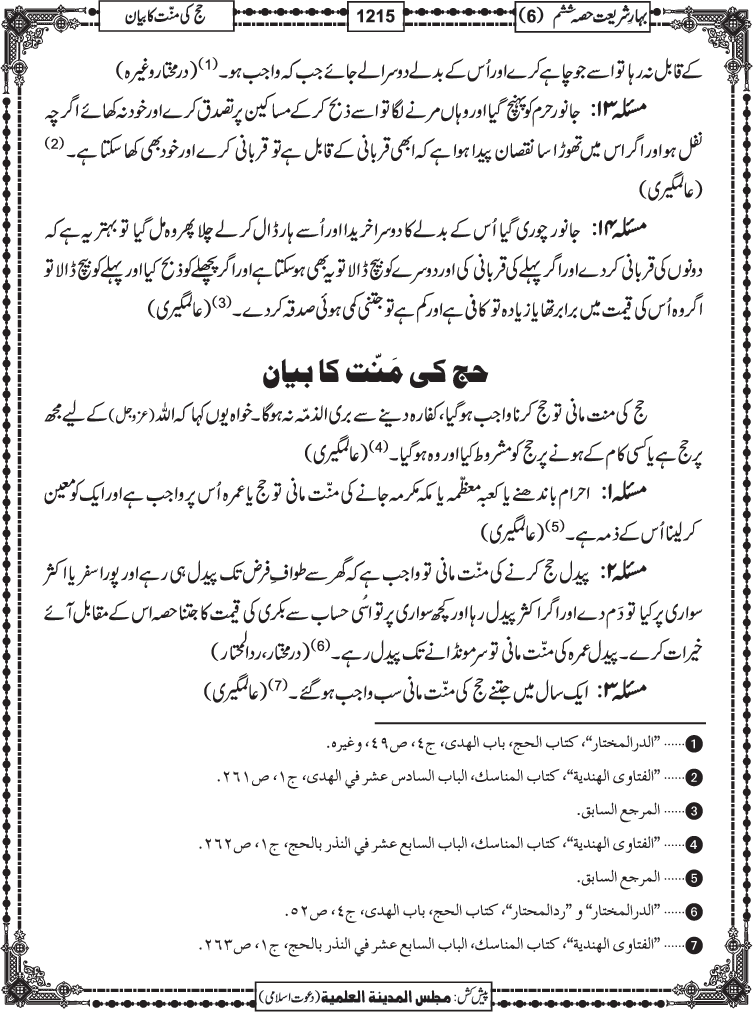 بہارِ شریعت حصہ ششم (6)
1215
حج کی منّت کا بیان
کے قابل نہ رہا تو اسے جو چاہے کرے اور اُس کے بدلے دوسرا لے جائے جب کہ واجب ہو۔ (1) (درمختار وغیرہ)
مسئلہ ۱۳: جانور حرم کو پہنچ گیا اور وہاں مرنے لگا تو اسے ذبح کر کے مساکین پر تصدق کرے اور خود نہ کھائے اگرچہ
نفل ہو اور اگر اس میں تھوڑا سا نقصان پیدا ہوا ہے کہ ابھی قربانی کے قابل ہے تو قربانی کرے اور خود بھی کھا سکتا ہے۔ (2)
(عالمگیری)
مسئلہ ۱۴: جانور چوری گیا اُس کے بدلے کا دوسرا خریدا اور اُسے ہار ڈال کر لے چلا پھر وہ مل گیا تو بہتر یہ ہے کہ
دونوں کی قربانی کر دے اور اگر پہلے کی قربانی کی اور دوسرے کو بیچ ڈالا تو یہ بھی ہو سکتا ہے اور اگر پچھلے کو ذبح کیا اور پہلے کو بیچ ڈالا تو
اگر وہ اُس کی قیمت میں برابر تھا یا زیادہ تو کافی ہے اور کم ہے تو جتنی کمی ہوئی صدقہ کر دے۔ (3) (عالمگیری)
حج کی مَنّت کا بیان
حج کی منت مانی تو حج کرنا واجب ہوگیا، کفارہ دینے سے بری الذمّہ نہ ہوگا۔ خواہ یوں کہا کہ اللہ (عزوجل) کے لیے مجھ
پر حج ہے یا کسی کام کے ہونے پر حج کو مشروط کیا اور وہ ہوگیا۔ (4) (عالمگیری)
مسئلہ ۱: احرام باندھنے یا کعبہ معظّمہ یا مکہ مکرمہ جانے کی منّت مانی تو حج یا عمرہ اُس پر واجب ہے اور ایک کو معین
کر لینا اُس کے ذمہ ہے۔ (5) (عالمگیری)
مسئلہ ۲: پیدل حج کرنے کی منّت مانی تو واجب ہے کہ گھر سے طوافِ فرض تک پیدل ہی رہے اور پورا سفر یا اکثر
سواری پر کیا تو دَم دے اور اگر اکثر پیدل رہا اور کچھ سواری پر تو اُسی حساب سے بکری کی قیمت کا جتنا حصہ اس کے مقابل آئے
خیرات کرے۔ پیدل عمرہ کی منّت مانی تو سر مونڈانے تک پیدل رہے۔ (6) (درمختار، ردالمحتار)
مسئلہ ۳: ایک سال میں جتنے حج کی منّت مانی سب واجب ہوگئے۔ (7) (عالمگیری)
1 ...... "الدرالمختار"، کتاب الحج، باب الهدی، ج٤، ص٤٩، وغیره.
2 ...... "الفتاوی الهندیة"، کتاب المناسك، الباب السادس عشر في الهدی، ج١، ص٢٦١.
3 ...... المرجع السابق.
4 ...... "الفتاوی الهندیة"، کتاب المناسك، الباب السابع عشر في النذر بالحج، ج١، ص٢٦٢.
5 ...... المرجع السابق.
6 ...... "الدرالمختار" و "ردالمحتار"، کتاب الحج، باب الهدی، ج٤، ص٥٢.
7 ...... "الفتاوی الهندیة"، کتاب المناسك، الباب السابع عشر في النذر بالحج، ج١، ص٢٦٣.
پیش کش: مجلس المدینة العلمیة (دعوت اسلامی)